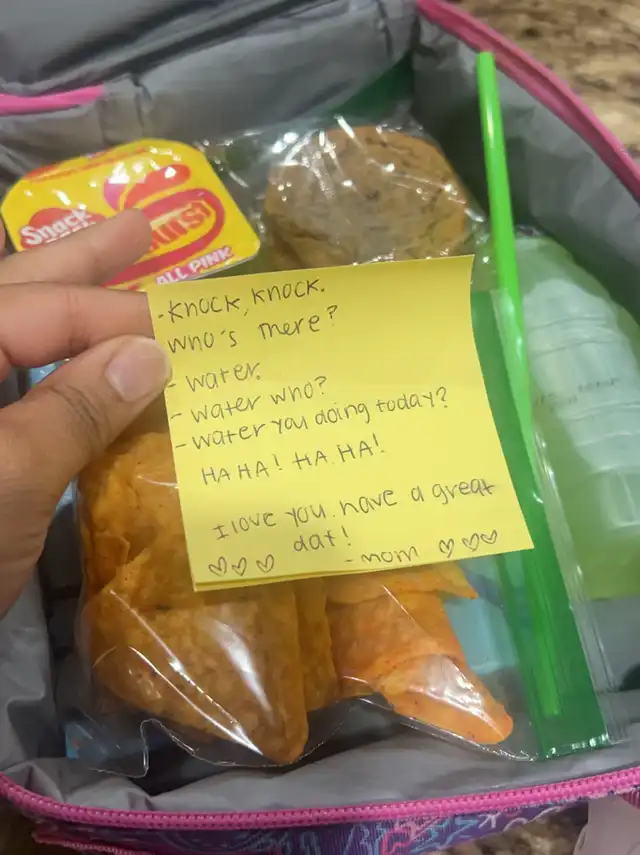 Snack
URST
ALL PINK
-KNOCK, KNOCK.
WHO'S THERE?
- WATER.
- WATER WHO?
- WATER YOU DOING TODAY?
HA HA! HA HA!
I LOVE YOU. HAVE A GREAT
DAT!
- MOM